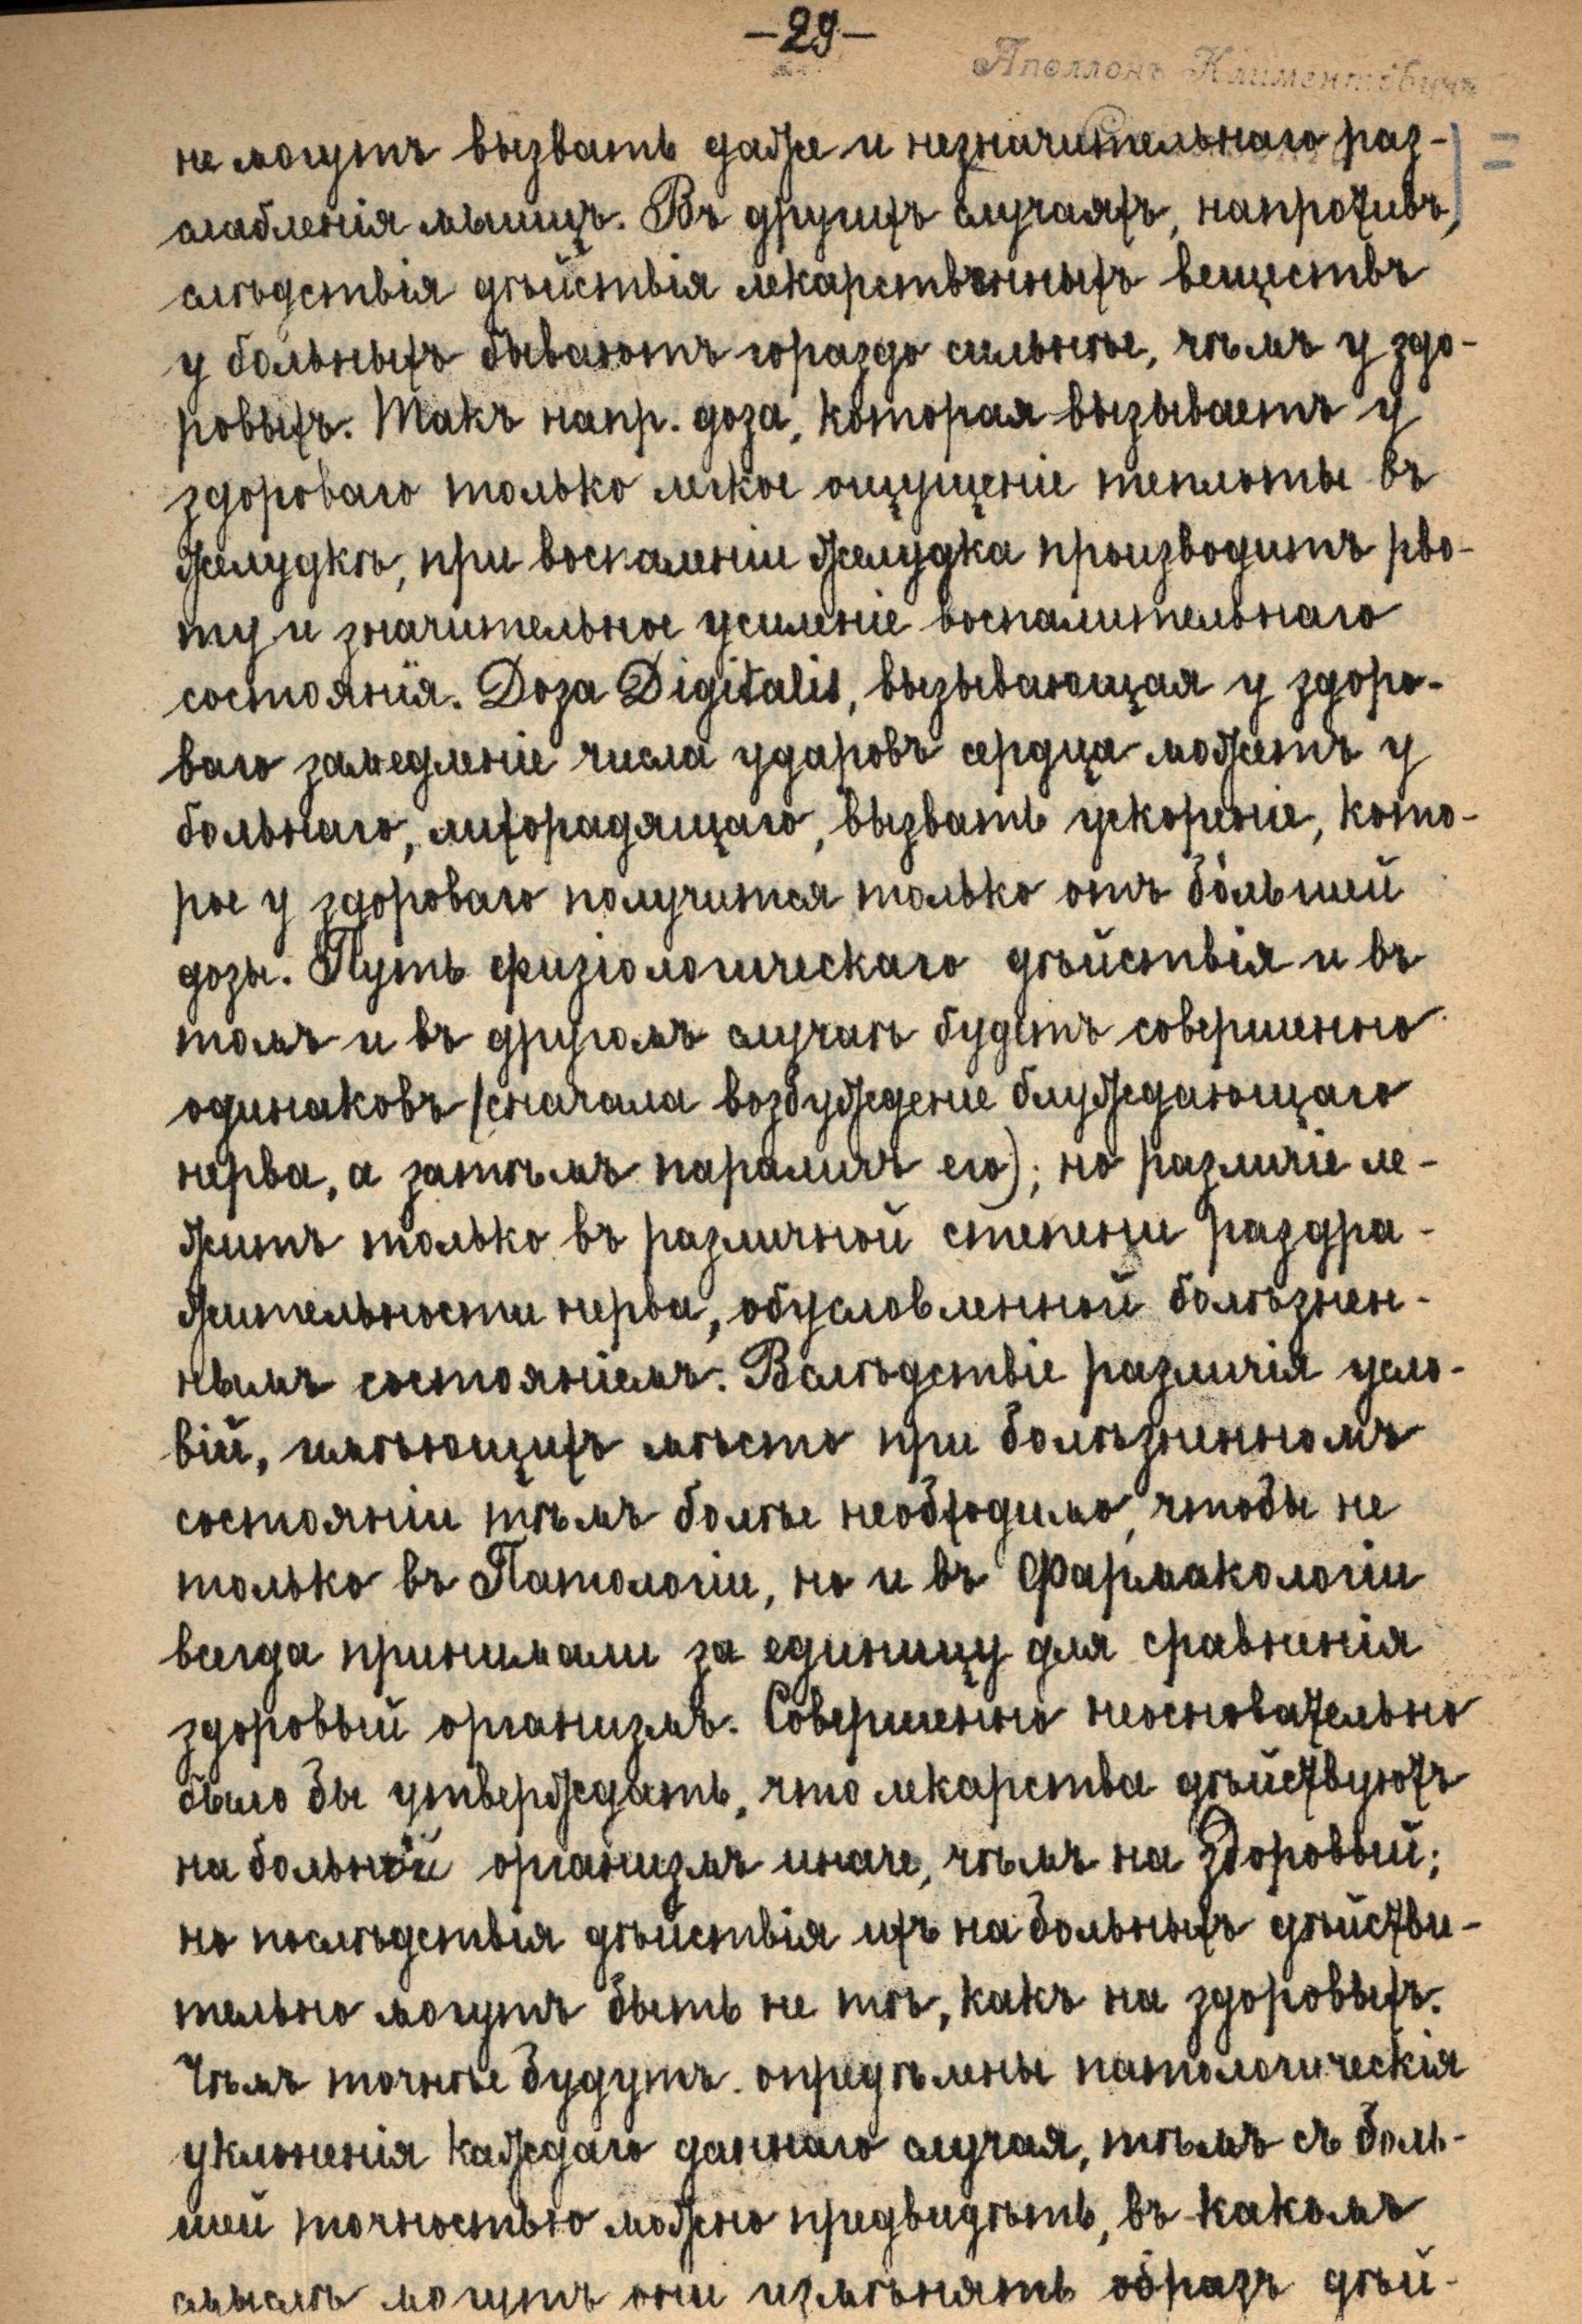 -29-
Аполлонъ Климентовичъ
не могутъ вызвать даже и незначительнаго раз-
слабленія мышцъ. Въ другихъ случаяхъ, напротивъ,
слѣдствія дѣйствія лекарственныхъ веществъ
у больныхъ бываютъ гораздо сильнѣе, чѣмъ у здо-
ровыхъ. Такъ напр. доза, которая вызываетъ у
здороваго только легкое ощущеніе теплоты въ
желудкѣ, при воспаленіи желудка производитъ рво-
ту и значительное усиленіе воспалительнаго
состоянія. Доза Digitalis, вызывающая у здоро-
ваго замедленіе числа ударовъ сердца можетъ у
больнаго, лихорадящаго, вызвать ускореніе, кото-
рое у здороваго получится только отъ большей
дозы. Путь физіологическаго дѣйствія и въ
томъ и въ другомъ случаѣ будетъ совершенно
одинаковъ (сначала возбужденіе блуждающаго
нерва, а затѣмъ параличъ его); но различіе ле-
житъ только въ различной степени раздра-
жительности нерва, обусловленной болѣзнен-
нымъ состояніемъ. Вслѣдствіе различія усло-
вій, имѣющихъ мѣсто при болѣзненномъ
состояніи тѣмъ болѣе необходимо, чтобы не
только въ Патологіи, но и въ Фармакологіи
всегда принимали за единицу для сравненія
здоровый организмъ. Совершенно неосновательно
было бы утверждать, что лекарства дѣйствуютъ
на больной организмъ иначе, чѣмъ на здоровый;
но послѣдствія дѣйствія ихъ на больныхъ дѣйстви-
тельно могутъ быть не тѣ, какъ на здоровыхъ.
Чѣмъ точнѣе будутъ опредѣлены патологическія
уклоненія каждаго даннаго случая, тѣмъ съ боль-
шей точностью можно предвидѣть, въ какомъ
смыслѣ могутъ они измѣнять образъ дѣй-